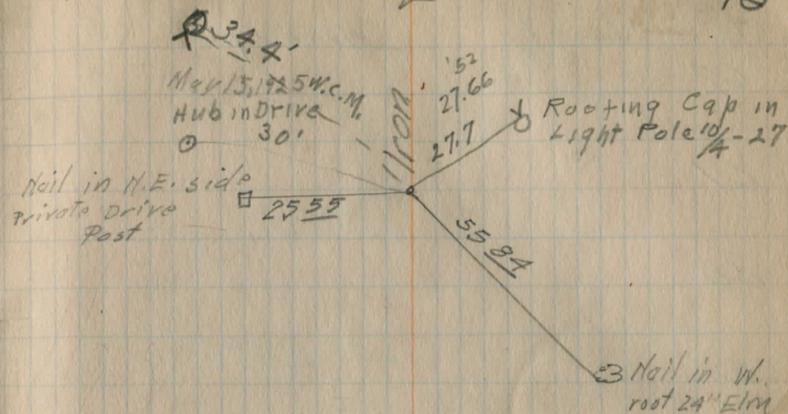 34.4'
May 15, 1925 W.C.M.
Hub in Drive
30'
Iron
'52
27.66
27.7
Roofing Cap in
Light Pole 10/4-27
Nail in N.E. side
Private Drive
Post
25 55
55 84
Nail in W.
root 24" Elm